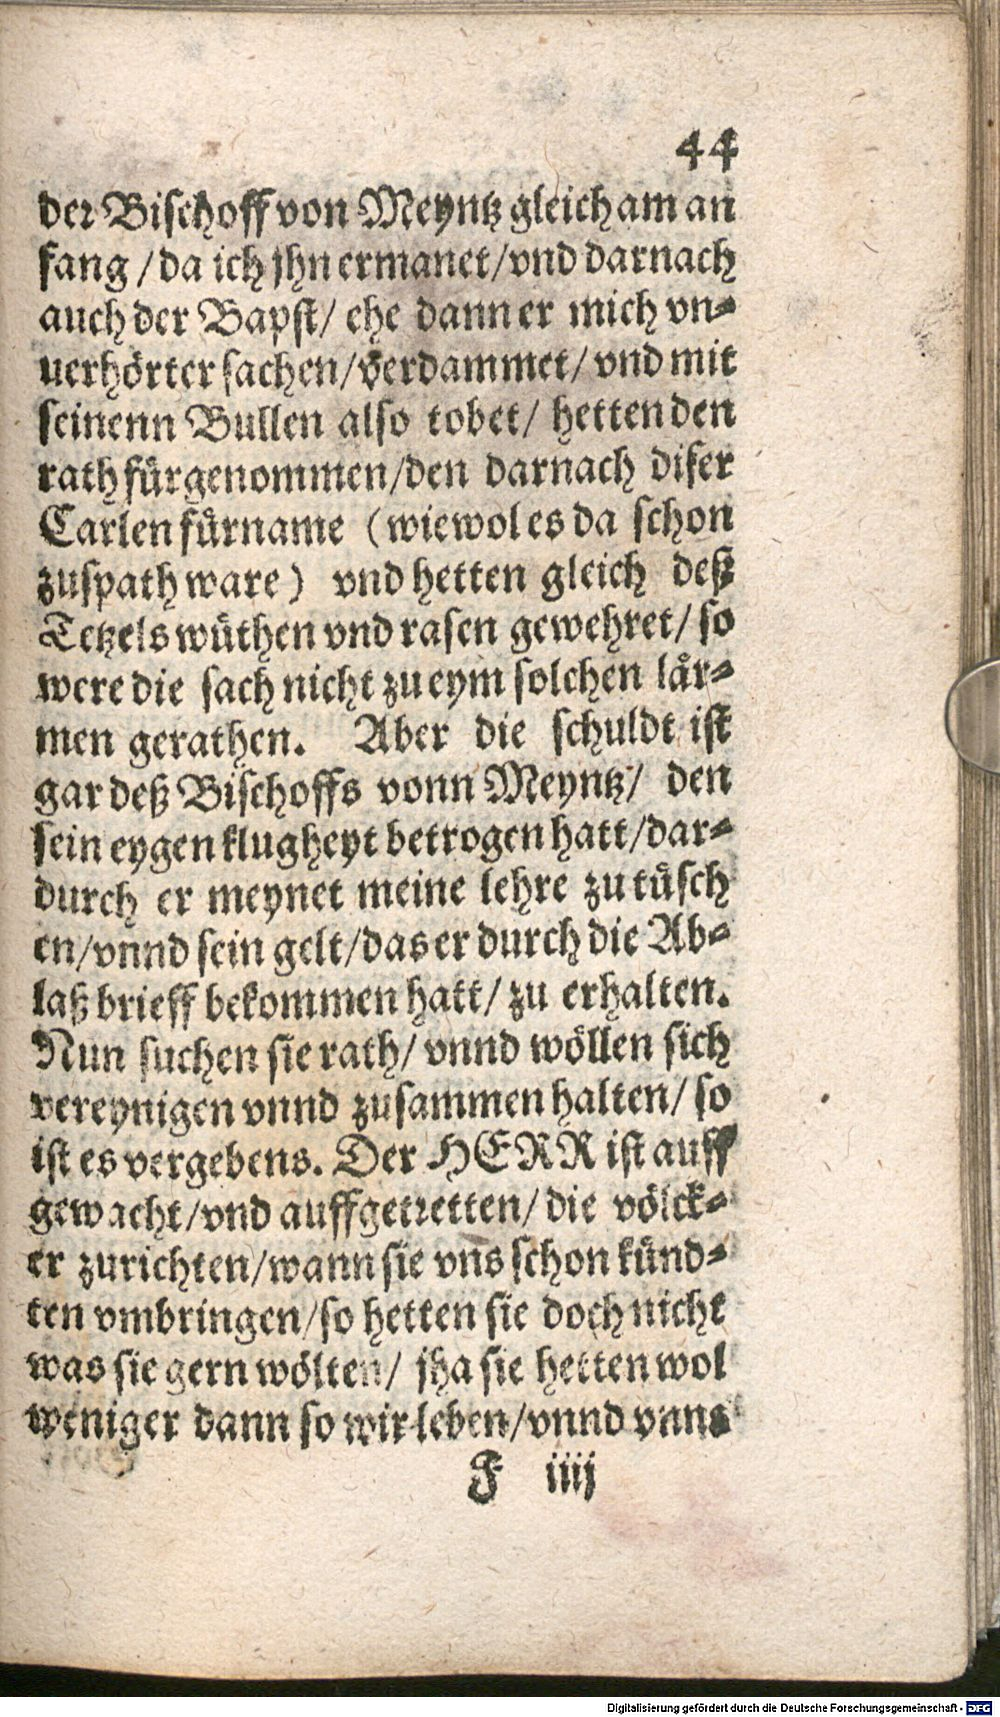 44
der Bischoff von Meyntz gleich am an
fang / da ich jhn ermanet / vnd darnach
auch der Bapst / ehe dann er mich vn-
uerhörter sachen / verdammet / vnd mit
seinenn Bullen also tobet / hetten den
rath fürgenommen / den darnach diser
Carlen fürname (wiewol es da schon
zuspath ware) vnd hetten gleich deß
Tetzels wüthen vnd rasen gewehret / so
were die sach nicht zu eym solchen lär-
men gerathen. Aber die schuldt ist
gar deß Bischoffs vonn Meyntz / den
sein eygen klugheyt betrogen hatt / dar-
durch er meynet meine lehre zu tüsch
en / vnnd sein gelt / das er durch die Ab-
laß brieff bekommen hatt / zu erhalten.
Nun suchen sie rath / vnnd wöllen sich
vereynigen vnnd zusammen halten / so
ist es vergebens. Der HERR ist auff
gewacht / vnd auffgetretten / die völck-
er zurichten / wann sie vns schon künd-
ten vmbringen / so hetten sie doch nicht
was sie gern wölten / jha sie hetten wol
weniger dann so wir leben / vnnd vnns
F iiij
Digitalisierung gefördert durch die Deutsche Forschungsgemeinschaft - DFG